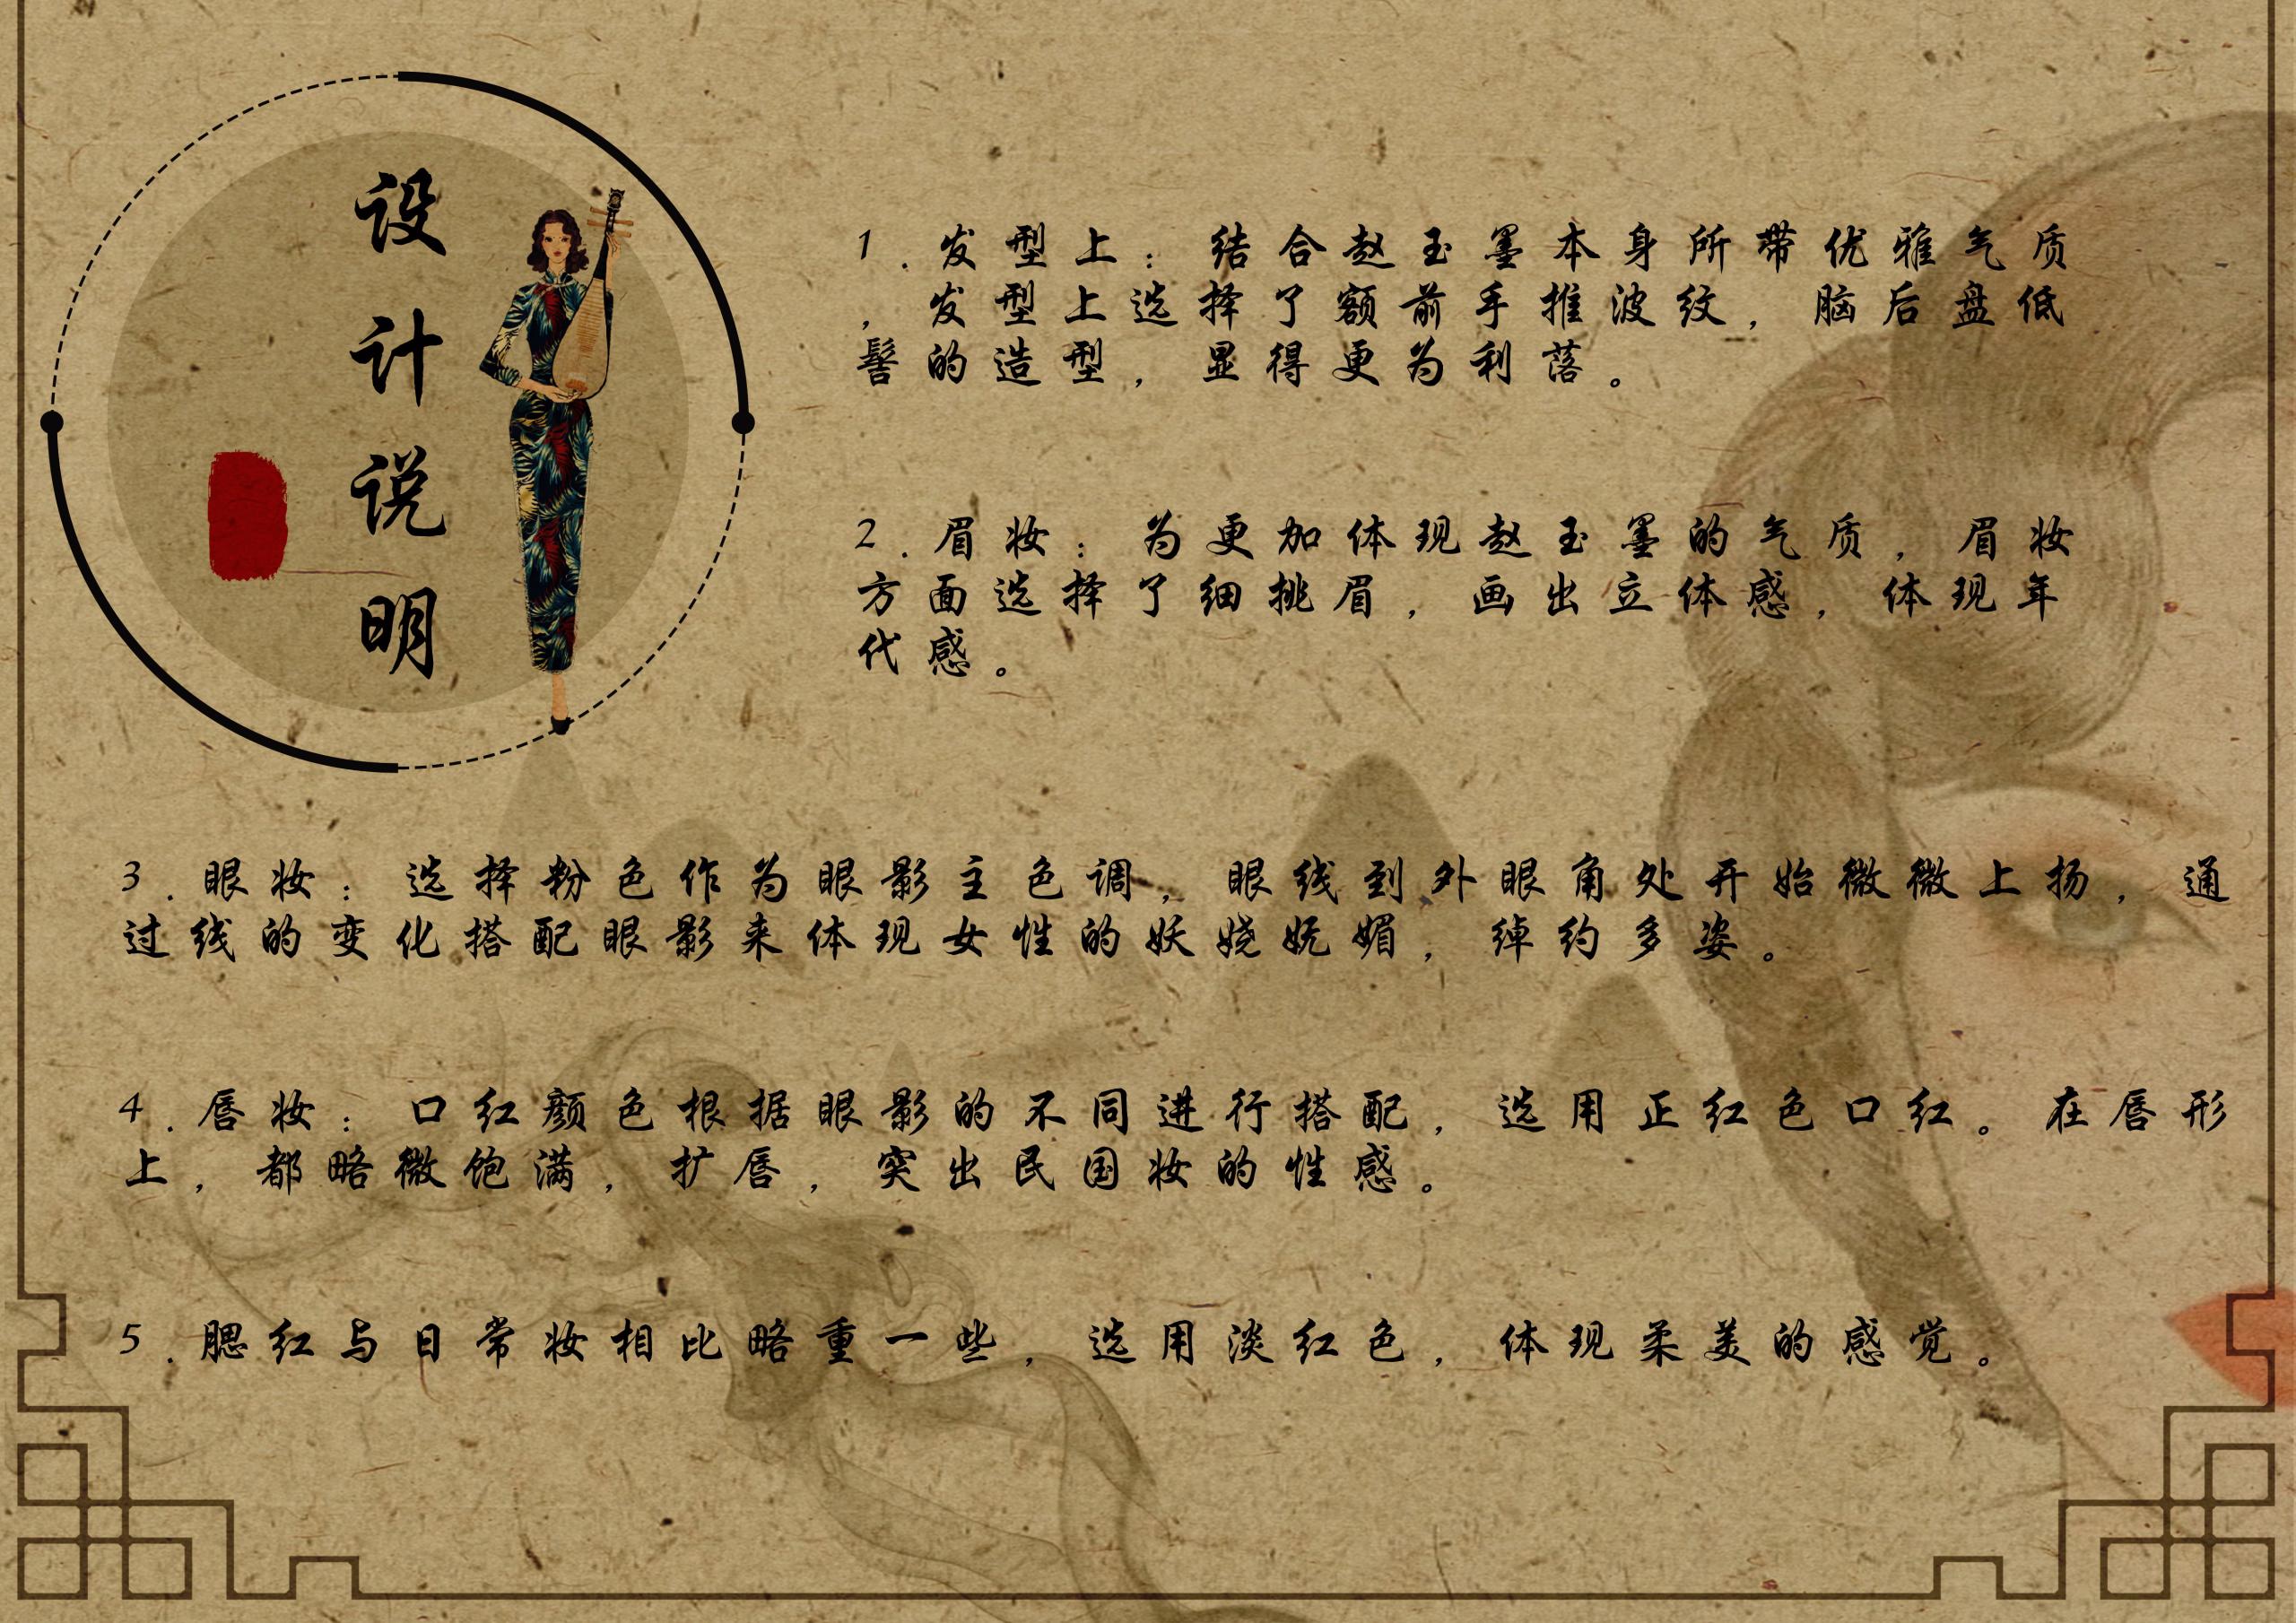 设计说明
1.发型上：结合赵玉墨本身所带优雅气质
，发型上选择了额前手推波纹，脑后盘低
髻的造型，显得更为利落。
2.眉妆：为更加体现赵玉墨的气质，眉妆
方面选择了细挑眉，画出立体感，体现年
代感。
3.眼妆：选择粉色作为眼影主色调，眼线到外眼角处开始微微上扬，通
过线的变化搭配眼影来体现女性的妖娆妩媚，绰约多姿。
4.唇妆：口红颜色根据眼影的不同进行搭配，选用正红色口红。在唇形
上，都略微饱满，扩唇，突出民国妆的性感。
5.腮红与日常妆相比略重一些，选用淡红色，体现柔美的感觉。